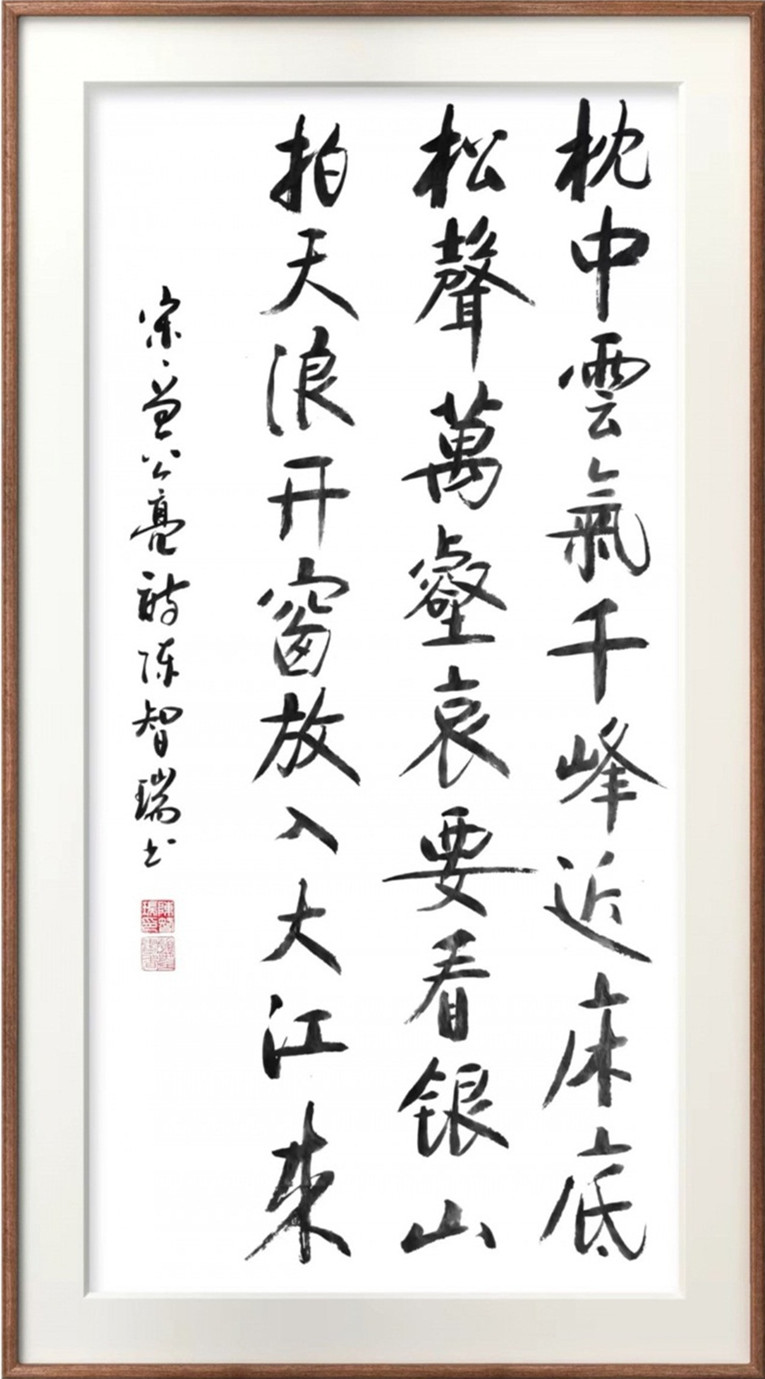 枕中雲氣千峰近床底
松聲萬壑哀要看银山
拍天浪开窗放入大江来
宋曾公亮诗陈智瑞书